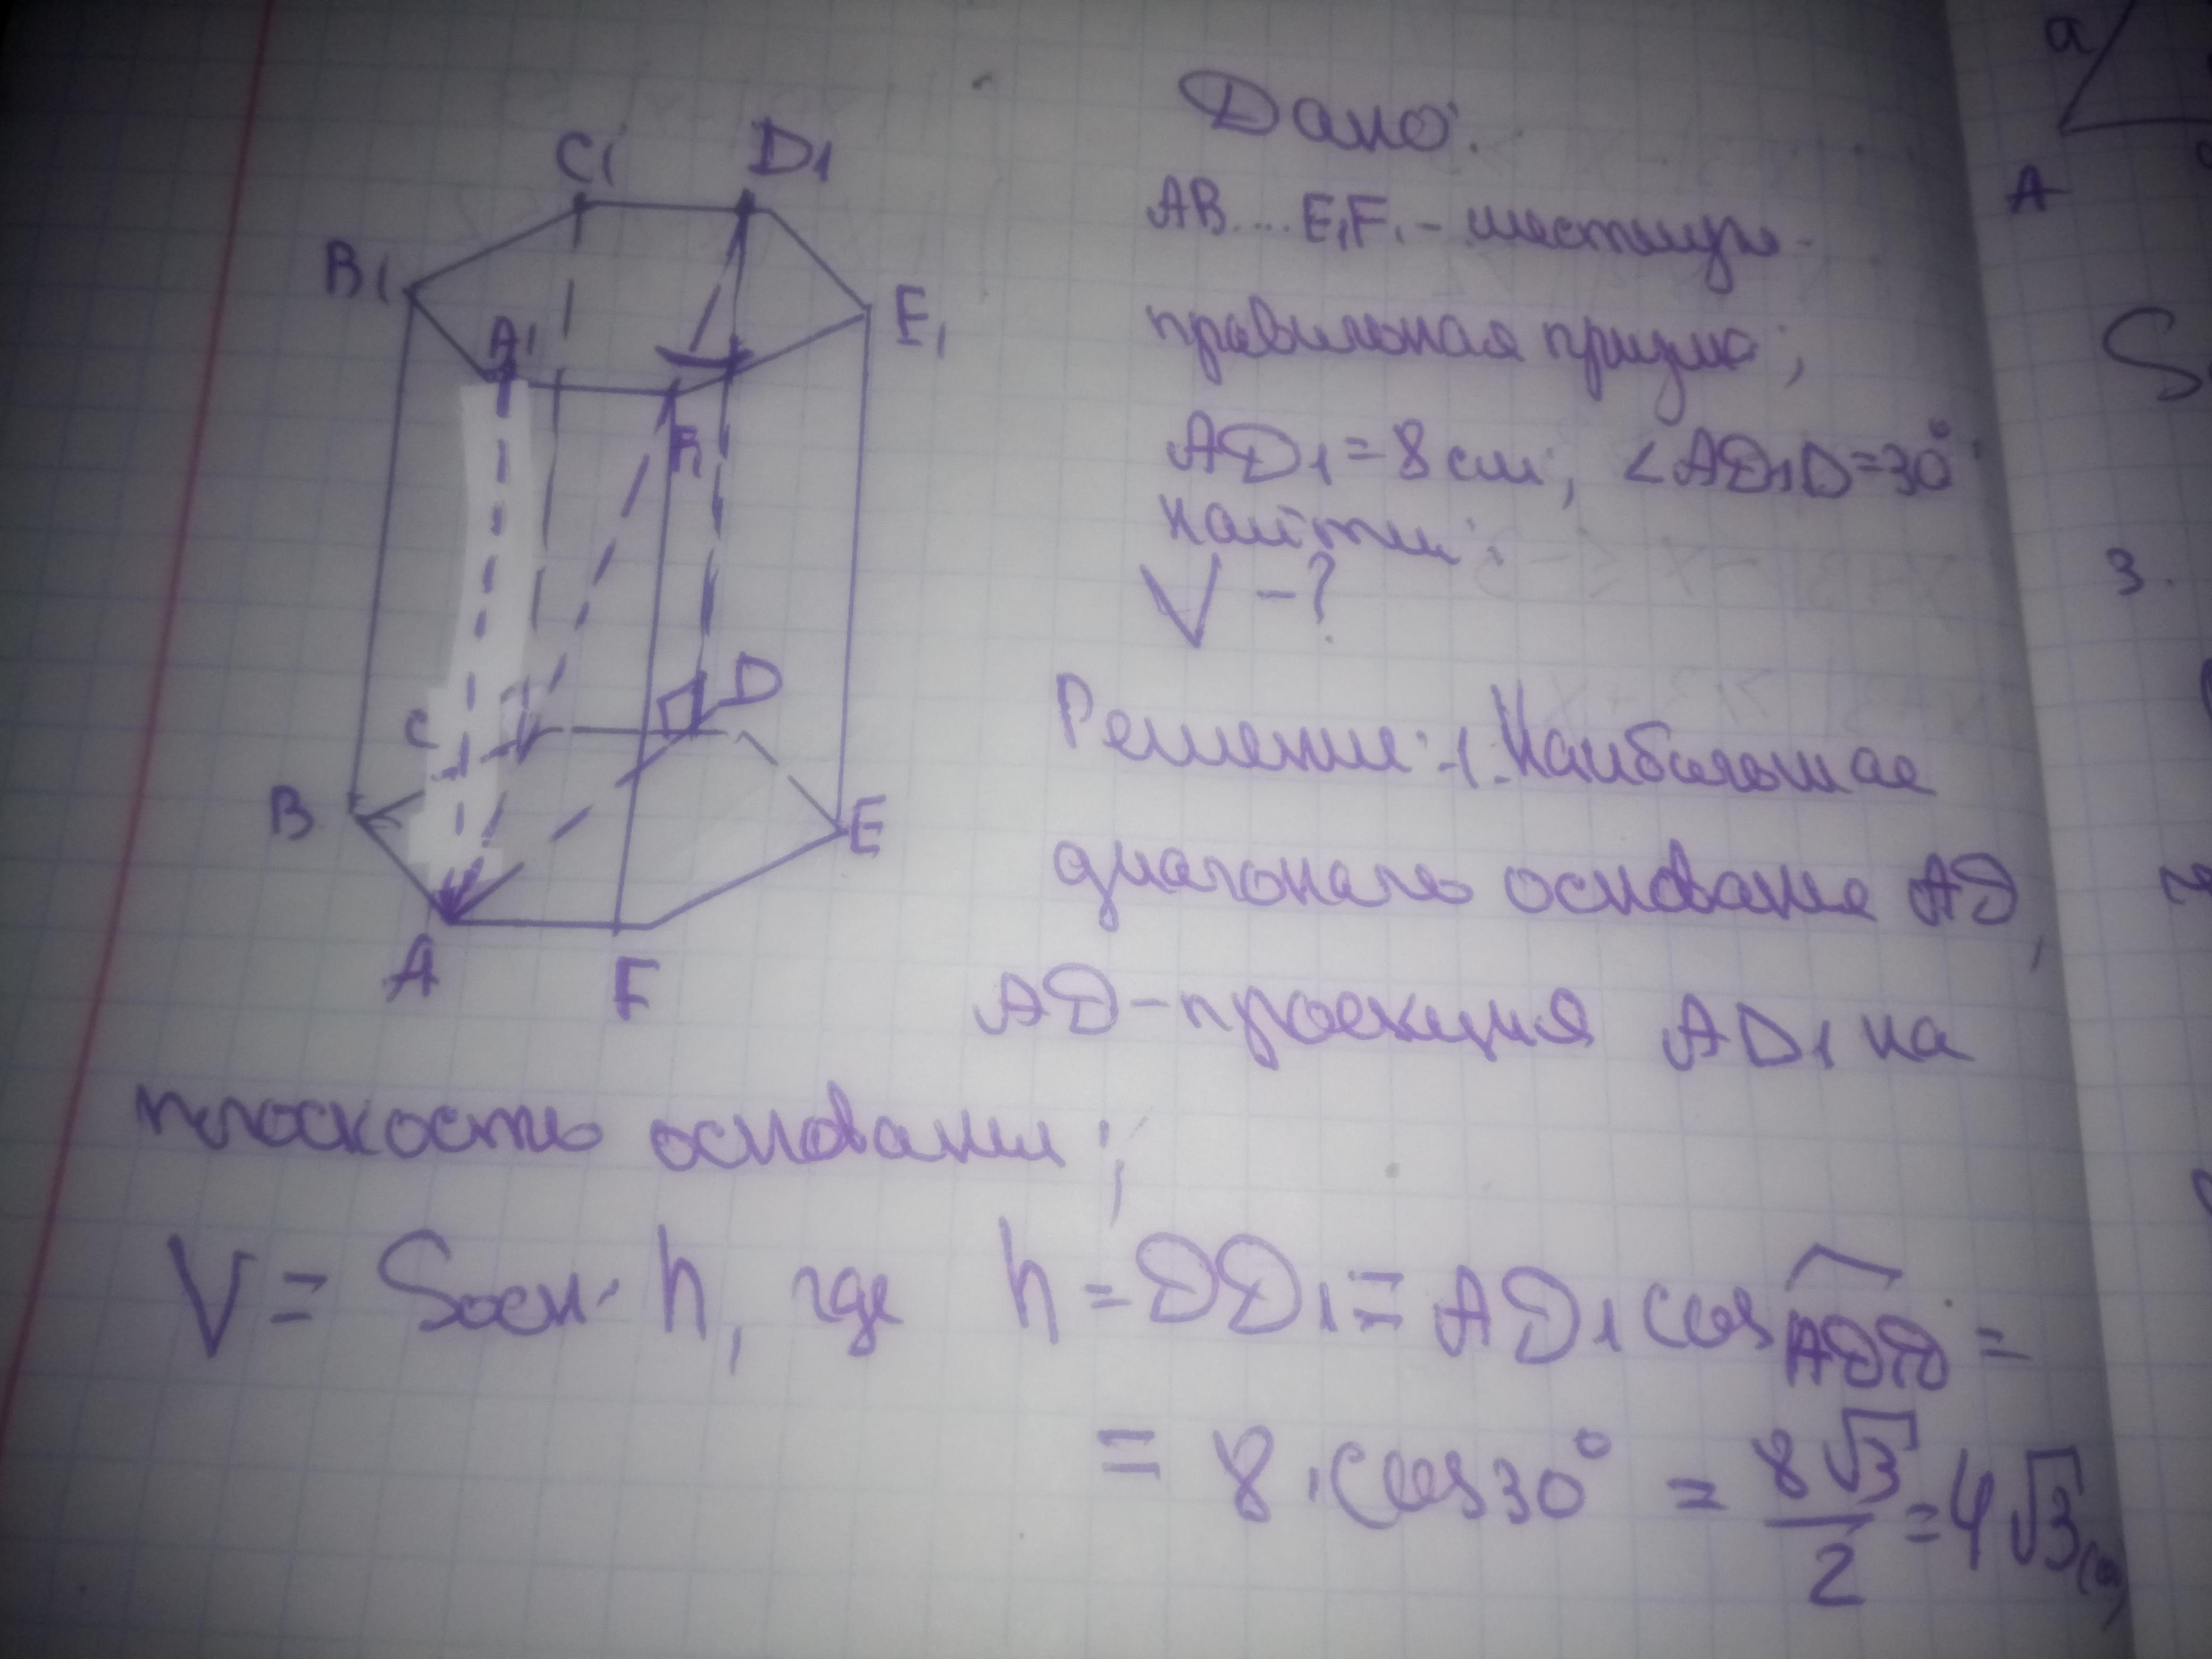 C₁ D₁
B₁ A₁ E₁
F₁
D
C
B E
A F
Дано:
AB....E₁F₁ - шестиуг.-
правильная призма;
AD₁ = 8 см; ∠AD₁D = 30°
найти:
V - ?
Решение: 1. Наибольшая
диагональ основания AD,
AD - проекция AD₁ на
плоскость основания;
V = Sосн. h, где h = DD₁ = AD₁ cos AD₁D =
= 8 · cos 30° = 8√3/2 = 4√3 (см)
a
A
S
3.